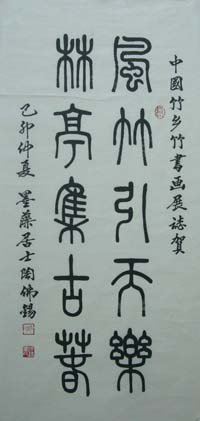 中國竹乡竹書画展誌賀
風竹引天樂
林亭集古春
己卯仲夏 墨藥居士陶佛錫